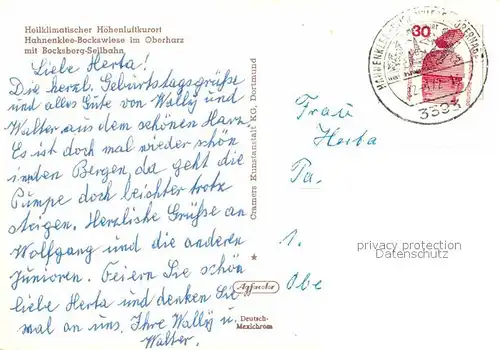 Heilklimatischer Höhenluftkurort
Hahnenklee-Bockswiese im Oberharz
mit Bocksberg-Seilbahn
Liebe Herta!
Die herzl. Geburtstagsgrüße
und alles Gute von Wally und
Walter aus dem schönen Harz.
Es ist doch mal wieder schön
in den Bergen, da geht die
Pumpe doch leichter trotz
steigen. Herzliche Grüße an
Wolfgang und die anderen
Junioren. Feiern Sie schön
liebe Herta und denken Sie
mal an uns. Ihre Wally u.
Walter.
Cramers Kunstanstalt KG, Dortmund
Agfacolor
Deutsch-
Mexichrom
30
HAHNENKLEE
3394
Frau
Herta
1.
privacy protection
Datenschutz